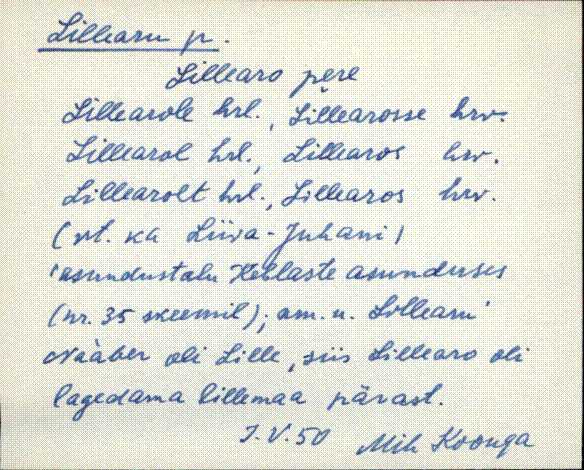 Lillearu p.
Lillearo pere
Lillearole hrl., Lillearosse hrv.
Lillearol hrl., Lillearos hrv.
Lillearolt hrl., Lillearos hrv.
(vt. ka Liiva-Juhani)
'asundustalu Keblaste asunduses
(nr. 35 skeemil); am. n. Lillearu'
Naaber oli Lille, siis Lillearo oli
lagedama lillemaa pärast.
I.V.50 Mih Koonga